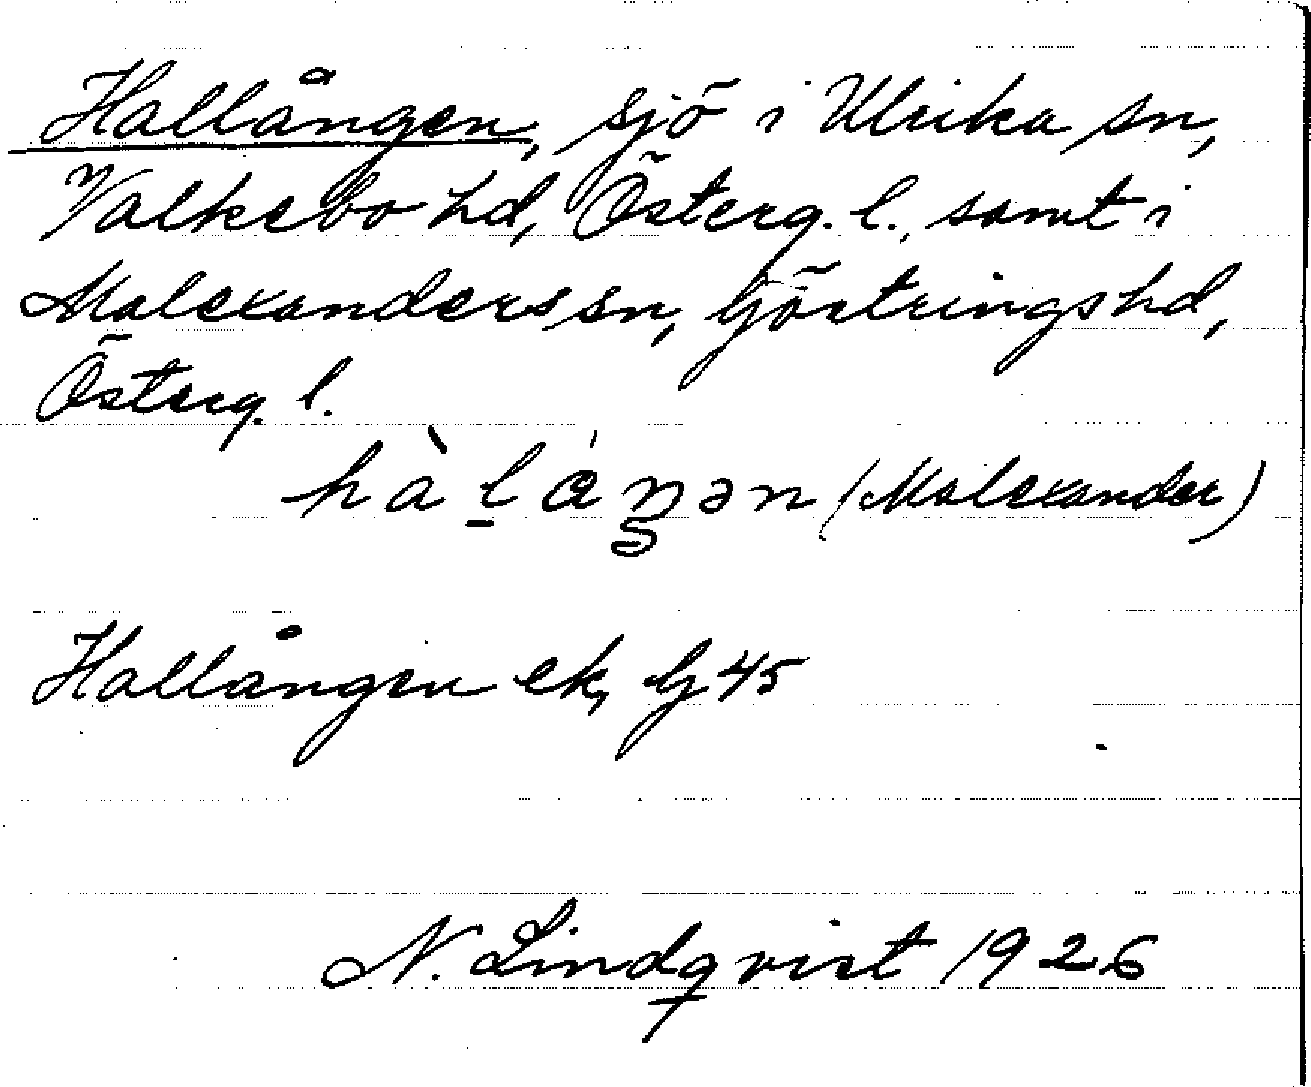 Hallången, sjö i Ulrika sn,
Valkebo hd, Österg. l., samt i
Malexanders sn, Göstrings hd,
Österg. l.
(Malexander)
Hallången ek, G 45
N. Lindqvist 1926